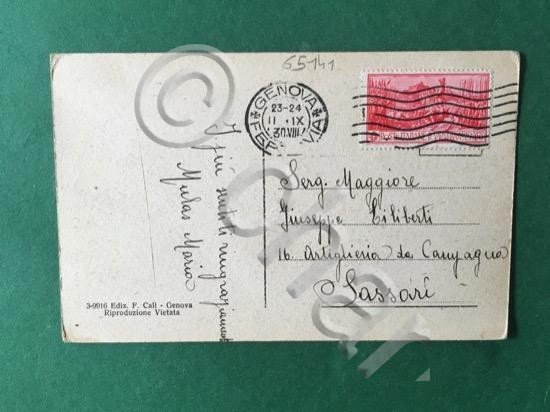 65141
GENOVA
23-24
11 IX
30 VIII
FERROVIA
I più sentiti ringraziamenti
Mulas Mario
Serg. Maggiore
Giuseppe Ciliberti
16. Artiglieria da Campagna
Sassari
3-9916 Ediz. F. Calì - Genova
Riproduzione Vietata
©